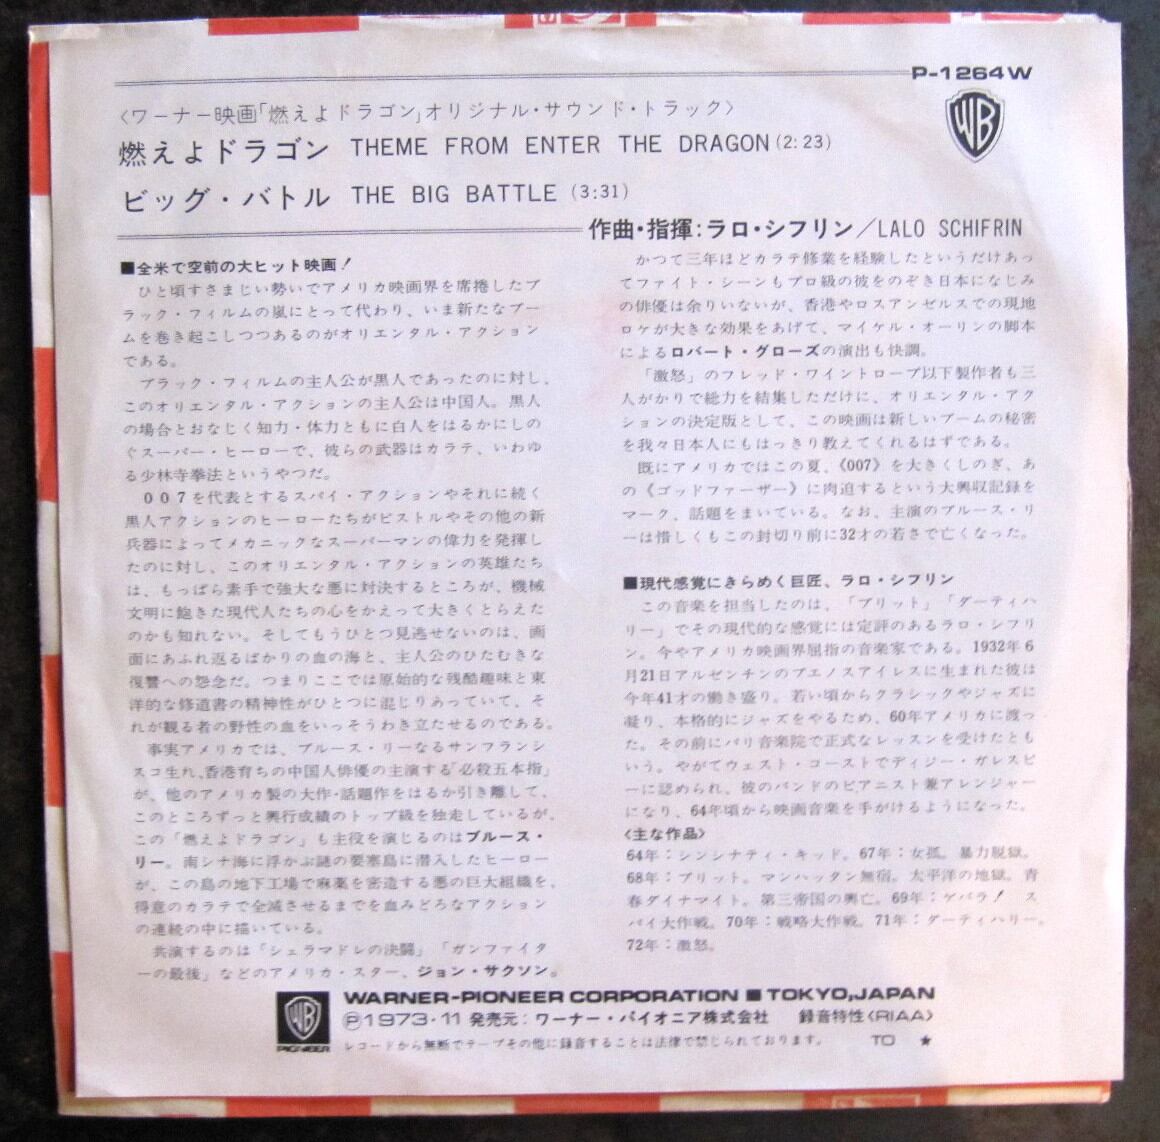 P-1264W
〈ワーナー映画「燃えよドラゴン」オリジナル・サウンド・トラック〉
燃えよドラゴン THEME FROM ENTER THE DRAGON (2:23)
ビッグ・バトル THE BIG BATTLE (3:31)
作曲・指揮：ラロ・シフリン／LALO SCHIFRIN
■全米で空前の大ヒット映画！
ひと頃すさまじい勢いでアメリカ映画界を席捲したブ
ラック・フィルムの嵐にとって代わり、いま新たなブー
ムを巻き起こしつつあるのがオリエンタル・アクション
である。
ブラック・フィルムの主人公が黒人であったのに対し、
このオリエンタル・アクションの主人公は中国人。黒人
の場合とおなじく知力・体力ともに白人をはるかにしの
ぐスーパー・ヒーローで、彼らの武器はカラテ、いわゆ
る少林寺拳法というやつだ。
007を代表とするスパイ・アクションやそれに続く
黒人アクションのヒーローたちがピストルやその他の新
兵器によってメカニックなスーパーマンの偉力を発揮し
たのに対し、このオリエンタル・アクションの英雄たち
は、もっぱら素手で強大な悪に対決するところが、機械
文明に飽きた現代人たちの心をかえって大きくとらえた
のかも知れない。そしてもうひとつ見逃せないのは、画
面にあふれ返るばかりの血の海と、主人公のひたむきな
復讐への怨念だ。つまりここでは原始的な残酷趣味と東
洋的な修道書の精神性がひとつに混じりあっていて、そ
れが観る者の野性の血をいっそうわき立たせるのである。
事実アメリカでは、ブルース・リーなるサンフランシ
スコ生れ、香港育ちの中国人俳優の主演する「必殺五本指」
が、他のアメリカ製の大作・話題作をはるか引き離して、
このところずっと興行成績のトップ級を独走しているが、
この「燃えよドラゴン」も主役を演じるのはブルース・
リー。南シナ海に浮かぶ謎の要塞島に潜入したヒーロー
が、この島の地下工場で麻薬を密造する悪の巨大組織を、
得意のカラテで全滅させるまでを血みどろなアクション
の連続の中に描いている。
共演するのは「シェラマドレの決闘」「ガンファイタ
ーの最後」などのアメリカ・スター、ジョン・サクソン。
かつて三年ほどカラテ修業を経験したというだけあっ
てファイト・シーンもプロ級の彼をのぞき日本になじみ
の俳優は余りいないが、香港やロスアンゼルスでの現地
ロケが大きな効果をあげて、マイケル・オーリンの脚本
によるロバート・グローズの演出も快調。
「激怒」のフレッド・ワイントローブ以下製作者も三
人がかりで総力を結集しただけに、オリエンタル・アク
ションの決定版として、この映画は新しいブームの秘密
を我々日本人にもはっきり教えてくれるはずである。
既にアメリカではこの夏、《007》を大きくしのぎ、あ
の《ゴッドファーザー》に肉迫するという大興収記録を
マーク、話題をまいている。なお、主演のブルース・リ
ーは惜しくもこの封切り前に32才の若さで亡くなった。
■現代感覚にきらめく巨匠、ラロ・シフリン
この音楽を担当したのは、「ブリット」「ダーティハ
リー」でその現代的な感覚には定評のあるラロ・シフリ
ン。今やアメリカ映画界屈指の音楽家である。1932年6
月21日アルゼンチンのブエノスアイレスに生まれた彼は
今年41才の働き盛り。若い頃からクラシックやジャズに
凝り、本格的にジャズをやるため、60年アメリカに渡っ
た。その前にパリ音楽院で正式なレッスンを受けたとも
いう。やがてウェスト・コーストでディジー・ガレスピ
ーに認められ、彼のバンドのピアニスト兼アレンジャー
になり、64年頃から映画音楽を手がけるようになった。
〈主な作品〉
64年：シンシナティ・キッド。67年：女狐。暴力脱獄。
68年：ブリット。マンハッタン無宿。太平洋の地獄。青
春ダイナマイト。第三帝国の興亡。69年：ゲバラ！ ス
パイ大作戦。70年：戦略大作戦。71年：ダーティハリー。
72年：激怒。
WARNER-PIONEER CORPORATION ■ TOKYO, JAPAN
Ⓟ1973・11 発売元：ワーナー・パイオニア株式会社 録音特性〈RIAA〉
PIONEER レコードから無断でテープその他に録音することは法律で禁じられております。 TO ★